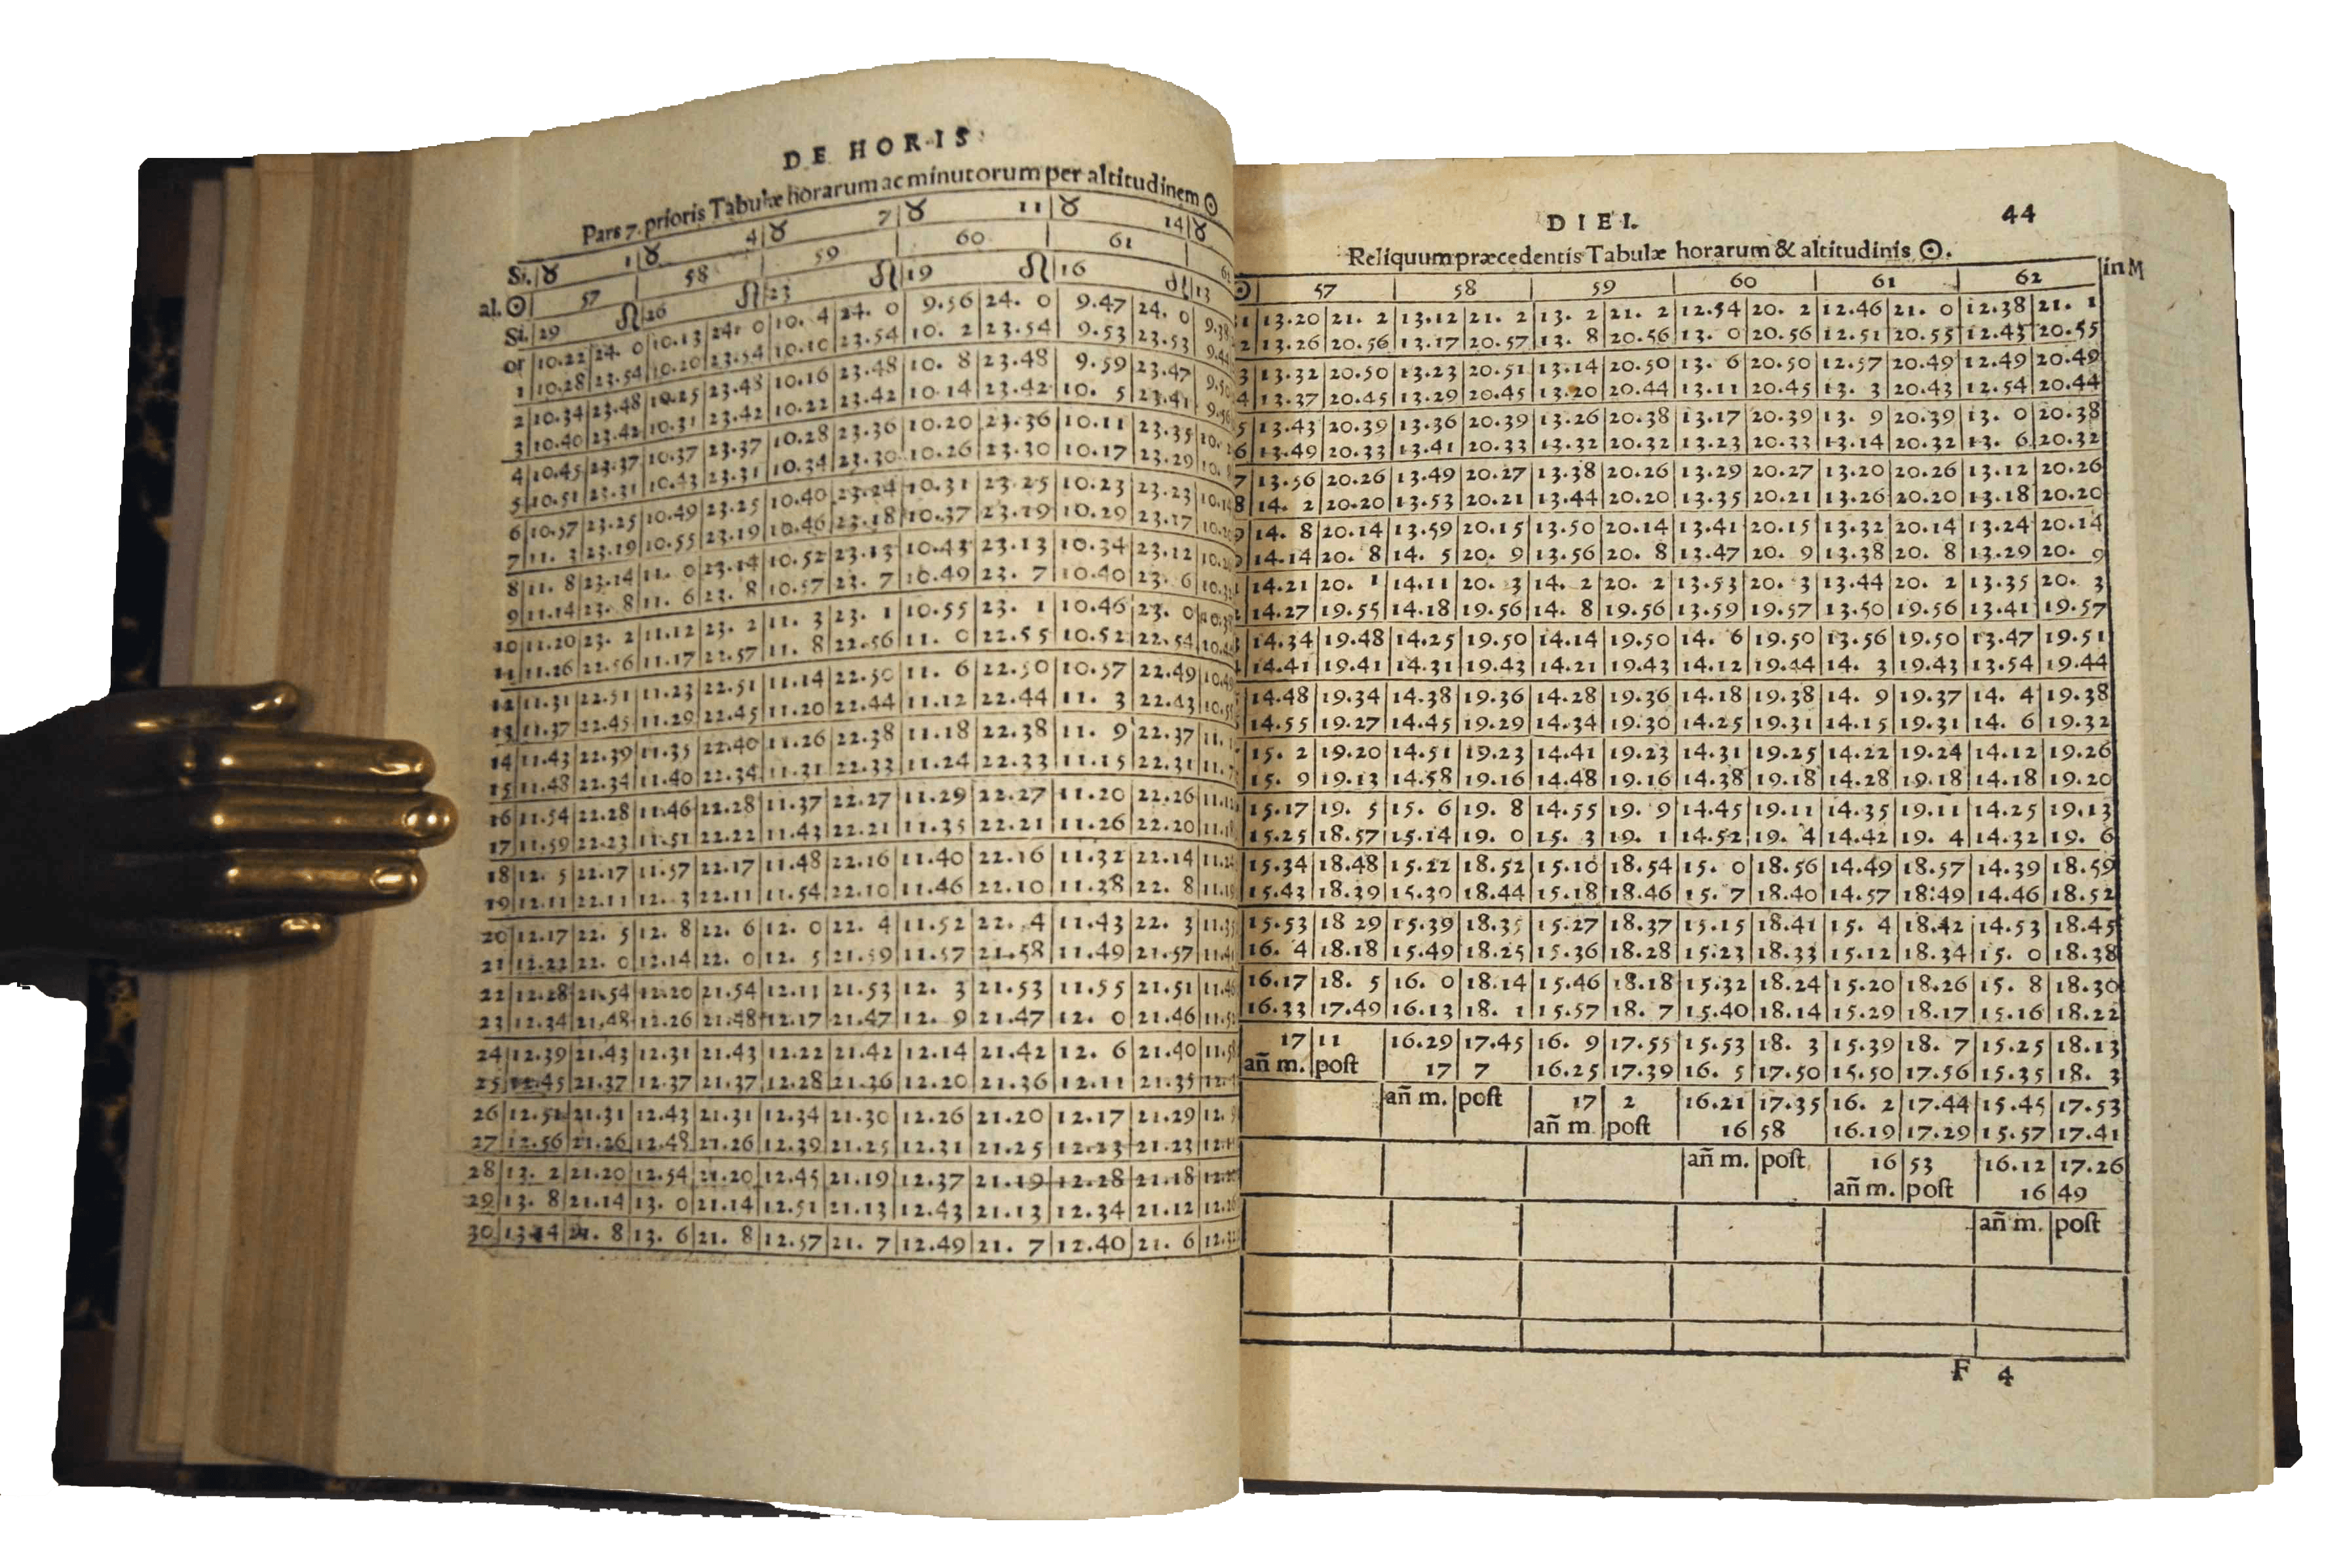 DE HORIS
Pars 7. prioris Tabulæ horarum ac minutorum per altitudinem ☉
Si. ♉ 1 ♉ 4 ♉ 7 ♉ 11 ♉ 14 ♉
al. ☉ 57 58 59 60 61
Si. 29 ♌ 26 ♌ 23 ♌ 19 ♌ 16 ♌ 13
or 10.22 24. 0 10.13 24. 0 10. 4 24. 0 9.56 24. 0 9.47 24. 0 9.38
1 10.28 23.54 10.20 23.54 10.10 23.54 10. 2 23.54 9.53 23.53
2 10.34 23.48 10.25 23.48 10.16 23.48 10. 8 23.48 9.59 23.47
3 10.40 23.42 10.31 23.42 10.22 23.42 10.14 23.42 10. 5 23.41
4 10.45 23.37 10.37 23.37 10.28 23.36 10.20 23.36 10.11 23.35
5 10.51 23.31 10.43 23.31 10.34 23.30 10.26 23.30 10.17 23.29
6 10.57 23.25 10.49 23.25 10.40 23.24 10.31 23.25 10.23 23.23
7 11. 3 23.19 10.55 23.19 10.46 23.18 10.37 23.19 10.29 23.17
8 11. 8 23.14 11. 0 23.14 10.52 23.13 10.43 23.13 10.34 23.12
9 11.14 23. 8 11. 6 23. 8 10.57 23. 7 10.49 23. 7 10.40 23. 6
10 11.20 23. 2 11.12 23. 2 11. 3 23. 1 10.55 23. 1 10.46 23. 0
11 11.26 22.56 11.17 22.57 11. 8 22.56 11. 0 22.55 10.52 22.54
12 11.31 22.51 11.23 22.51 11.14 22.50 11. 6 22.50 10.57 22.49
13 11.37 22.45 11.29 22.45 11.20 22.44 11.12 22.44 11. 3 22.43
14 11.43 22.39 11.35 22.40 11.26 22.38 11.18 22.38 11. 9 22.37
15 11.48 22.34 11.40 22.34 11.31 22.33 11.24 22.33 11.15 22.31
16 11.54 22.28 11.46 22.28 11.37 22.27 11.29 22.27 11.20 22.26
17 11.59 22.23 11.51 22.22 11.43 22.21 11.35 22.21 11.26 22.20
18 12. 5 22.17 11.57 22.17 11.48 22.16 11.40 22.16 11.32 22.14
19 12.11 22.11 12. 3 22.11 11.54 22.10 11.46 22.10 11.38 22. 8
20 12.17 22. 5 12. 8 22. 6 12. 0 22. 4 11.52 22. 4 11.43 22. 3
21 12.22 22. 0 12.14 22. 0 12. 5 21.59 11.57 21.58 11.49 21.57
22 12.28 21.54 12.20 21.54 12.11 21.53 12. 3 21.53 11.55 21.51
23 12.34 21.48 12.26 21.48 12.17 21.47 12. 9 21.47 12. 0 21.46
24 12.39 21.43 12.31 21.43 12.22 21.42 12.14 21.42 12. 6 21.40
25 12.45 21.37 12.37 21.37 12.28 21.36 12.20 21.36 12.11 21.35
26 12.51 21.31 12.43 21.31 12.34 21.30 12.26 21.20 12.17 21.29
27 12.56 21.26 12.48 21.26 12.39 21.25 12.31 21.25 12.23 21.23
28 13. 2 21.20 12.54 21.20 12.45 21.19 12.37 21.19 12.28 21.18
29 13. 8 21.14 13. 0 21.14 12.51 21.13 12.43 21.13 12.34 21.12
30 13.14 21. 8 13. 6 21. 8 12.57 21. 7 12.49 21. 7 12.40 21. 6
DIEI. 44
Reliquum præcedentis Tabulæ horarum & altitudinis ☉.
☉ 57 58 59 60 61 62 in M
13.20 21. 2 13.12 21. 2 13. 2 21. 2 12.54 20. 2 12.46 21. 0 12.38 21. 1
13.26 20.56 13.17 20.57 13. 8 20.56 13. 0 20.56 12.51 20.55 12.43 20.55
13.32 20.50 13.23 20.51 13.14 20.50 13. 6 20.50 12.57 20.49 12.49 20.49
13.37 20.45 13.29 20.45 13.20 20.44 13.11 20.45 13. 3 20.43 12.54 20.44
13.43 20.39 13.36 20.39 13.26 20.38 13.17 20.39 13. 9 20.39 13. 0 20.38
13.49 20.33 13.41 20.33 13.32 20.32 13.23 20.33 13.14 20.32 13. 6 20.32
13.56 20.26 13.49 20.27 13.38 20.26 13.29 20.27 13.20 20.26 13.12 20.26
14. 2 20.20 13.53 20.21 13.44 20.20 13.35 20.21 13.26 20.20 13.18 20.20
14. 8 20.14 13.59 20.15 13.50 20.14 13.41 20.15 13.32 20.14 13.24 20.14
14.14 20. 8 14. 5 20. 9 13.56 20. 8 13.47 20. 9 13.38 20. 8 13.29 20. 9
14.21 20. 1 14.11 20. 3 14. 2 20. 2 13.53 20. 3 13.44 20. 2 13.35 20. 3
14.27 19.55 14.18 19.56 14. 8 19.56 13.59 19.57 13.50 19.56 13.41 19.57
14.34 19.48 14.25 19.50 14.14 19.50 14. 6 19.50 13.56 19.50 13.47 19.51
14.41 19.41 14.31 19.43 14.21 19.43 14.12 19.44 14. 3 19.43 13.54 19.44
14.48 19.34 14.38 19.36 14.28 19.36 14.18 19.38 14. 9 19.37 14. 4 19.38
14.55 19.27 14.45 19.29 14.34 19.30 14.25 19.31 14.15 19.31 14. 6 19.32
15. 2 19.20 14.51 19.23 14.41 19.23 14.31 19.25 14.22 19.24 14.12 19.26
15. 9 19.13 14.58 19.16 14.48 19.16 14.38 19.18 14.28 19.18 14.18 19.20
15.17 19. 5 15. 6 19. 8 14.55 19. 9 14.45 19.11 14.35 19.11 14.25 19.13
15.25 18.57 15.14 19. 0 15. 3 19. 1 14.52 19. 4 14.42 19. 4 14.32 19. 6
15.34 18.48 15.22 18.52 15.10 18.54 15. 0 18.56 14.49 18.57 14.39 18.59
15.43 18.39 15.30 18.44 15.18 18.46 15. 7 18.40 14.57 18:49 14.46 18.52
15.53 18 29 15.39 18.35 15.27 18.37 15.15 18.41 15. 4 18.42 14.53 18.45
16. 4 18.18 15.49 18.25 15.36 18.28 15.23 18.33 15.12 18.34 15. 0 18.38
16.17 18. 5 16. 0 18.14 15.46 18.18 15.32 18.24 15.20 18.26 15. 8 18.30
16.33 17.49 16.13 18. 1 15.57 18. 7 15.40 18.14 15.29 18.17 15.16 18.22
17 11 16.29 17.45 16. 9 17.55 15.53 18. 3 15.39 18. 7 15.25 18.13
añ m. post 17 7 16.25 17.39 16. 5 17.50 15.50 17.56 15.35 18. 3
añ m. post 17 2 16.21 17.35 16. 2 17.44 15.45 17.53
añ m post 16 58 16.19 17.29 15.57 17.41
añ m. post 16 53 16.12 17.26
añ m. post 16 49
añ m. post
F 4